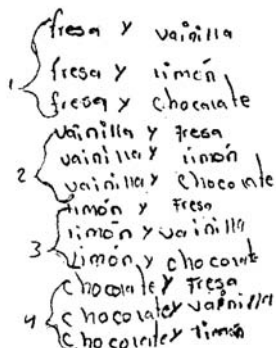 fresa y vainilla
fresa y limón
1 fresa y chocolate
vainilla y Fresa
vainilla y limón
2 vainilla y chocolate
limón y Fresa
3 limón y vainilla
Limón y chocolate
chocolate y Fresa
4 chocolate y vainilla
chocolate y limón